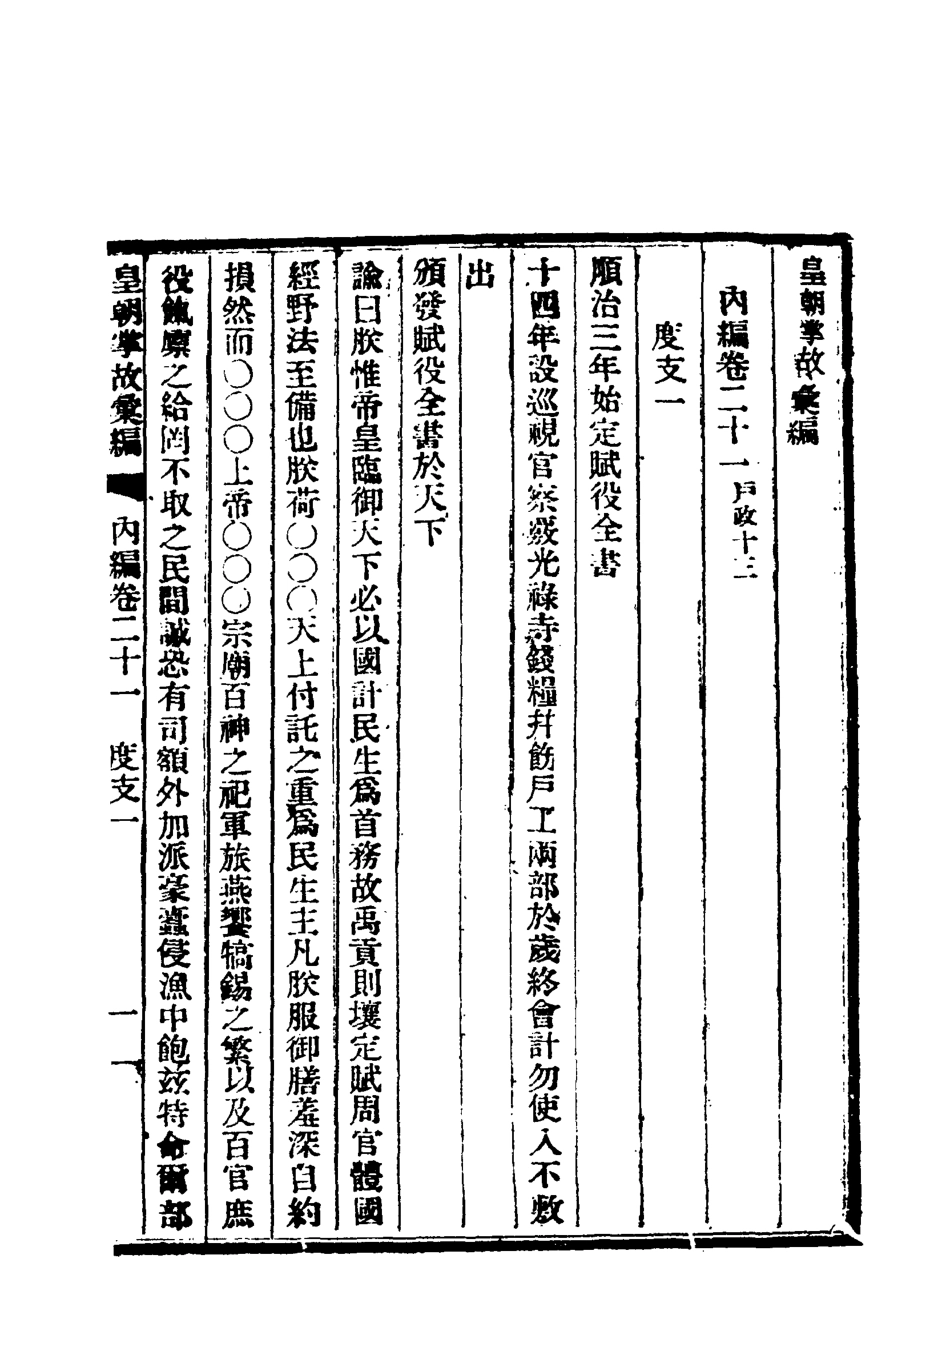 皇朝掌故彙編
內編卷二十一戶政十三
度支一
順治三年始定賦役全書
十四年設巡視官察覈光祿寺錢糧幷飭戶工兩部於歲終會計勿使入不敷
出
頒發賦役全書於天下
諭曰朕惟帝皇臨御天下必以國計民生爲首務故禹貢則壤定賦周官體國
經野法至備也朕荷〇〇〇天上付託之重爲民生主凡朕服御膳羞深自約
損然而〇〇〇上帝〇〇〇宗廟百神之祀軍旅燕饗犒錫之繁以及百官庶
役餼廩之給罔不取之民間誠恐有司額外加派豪蠹侵漁中飽玆特命爾部
皇朝掌故彙編 內編卷二十一 度支一 一